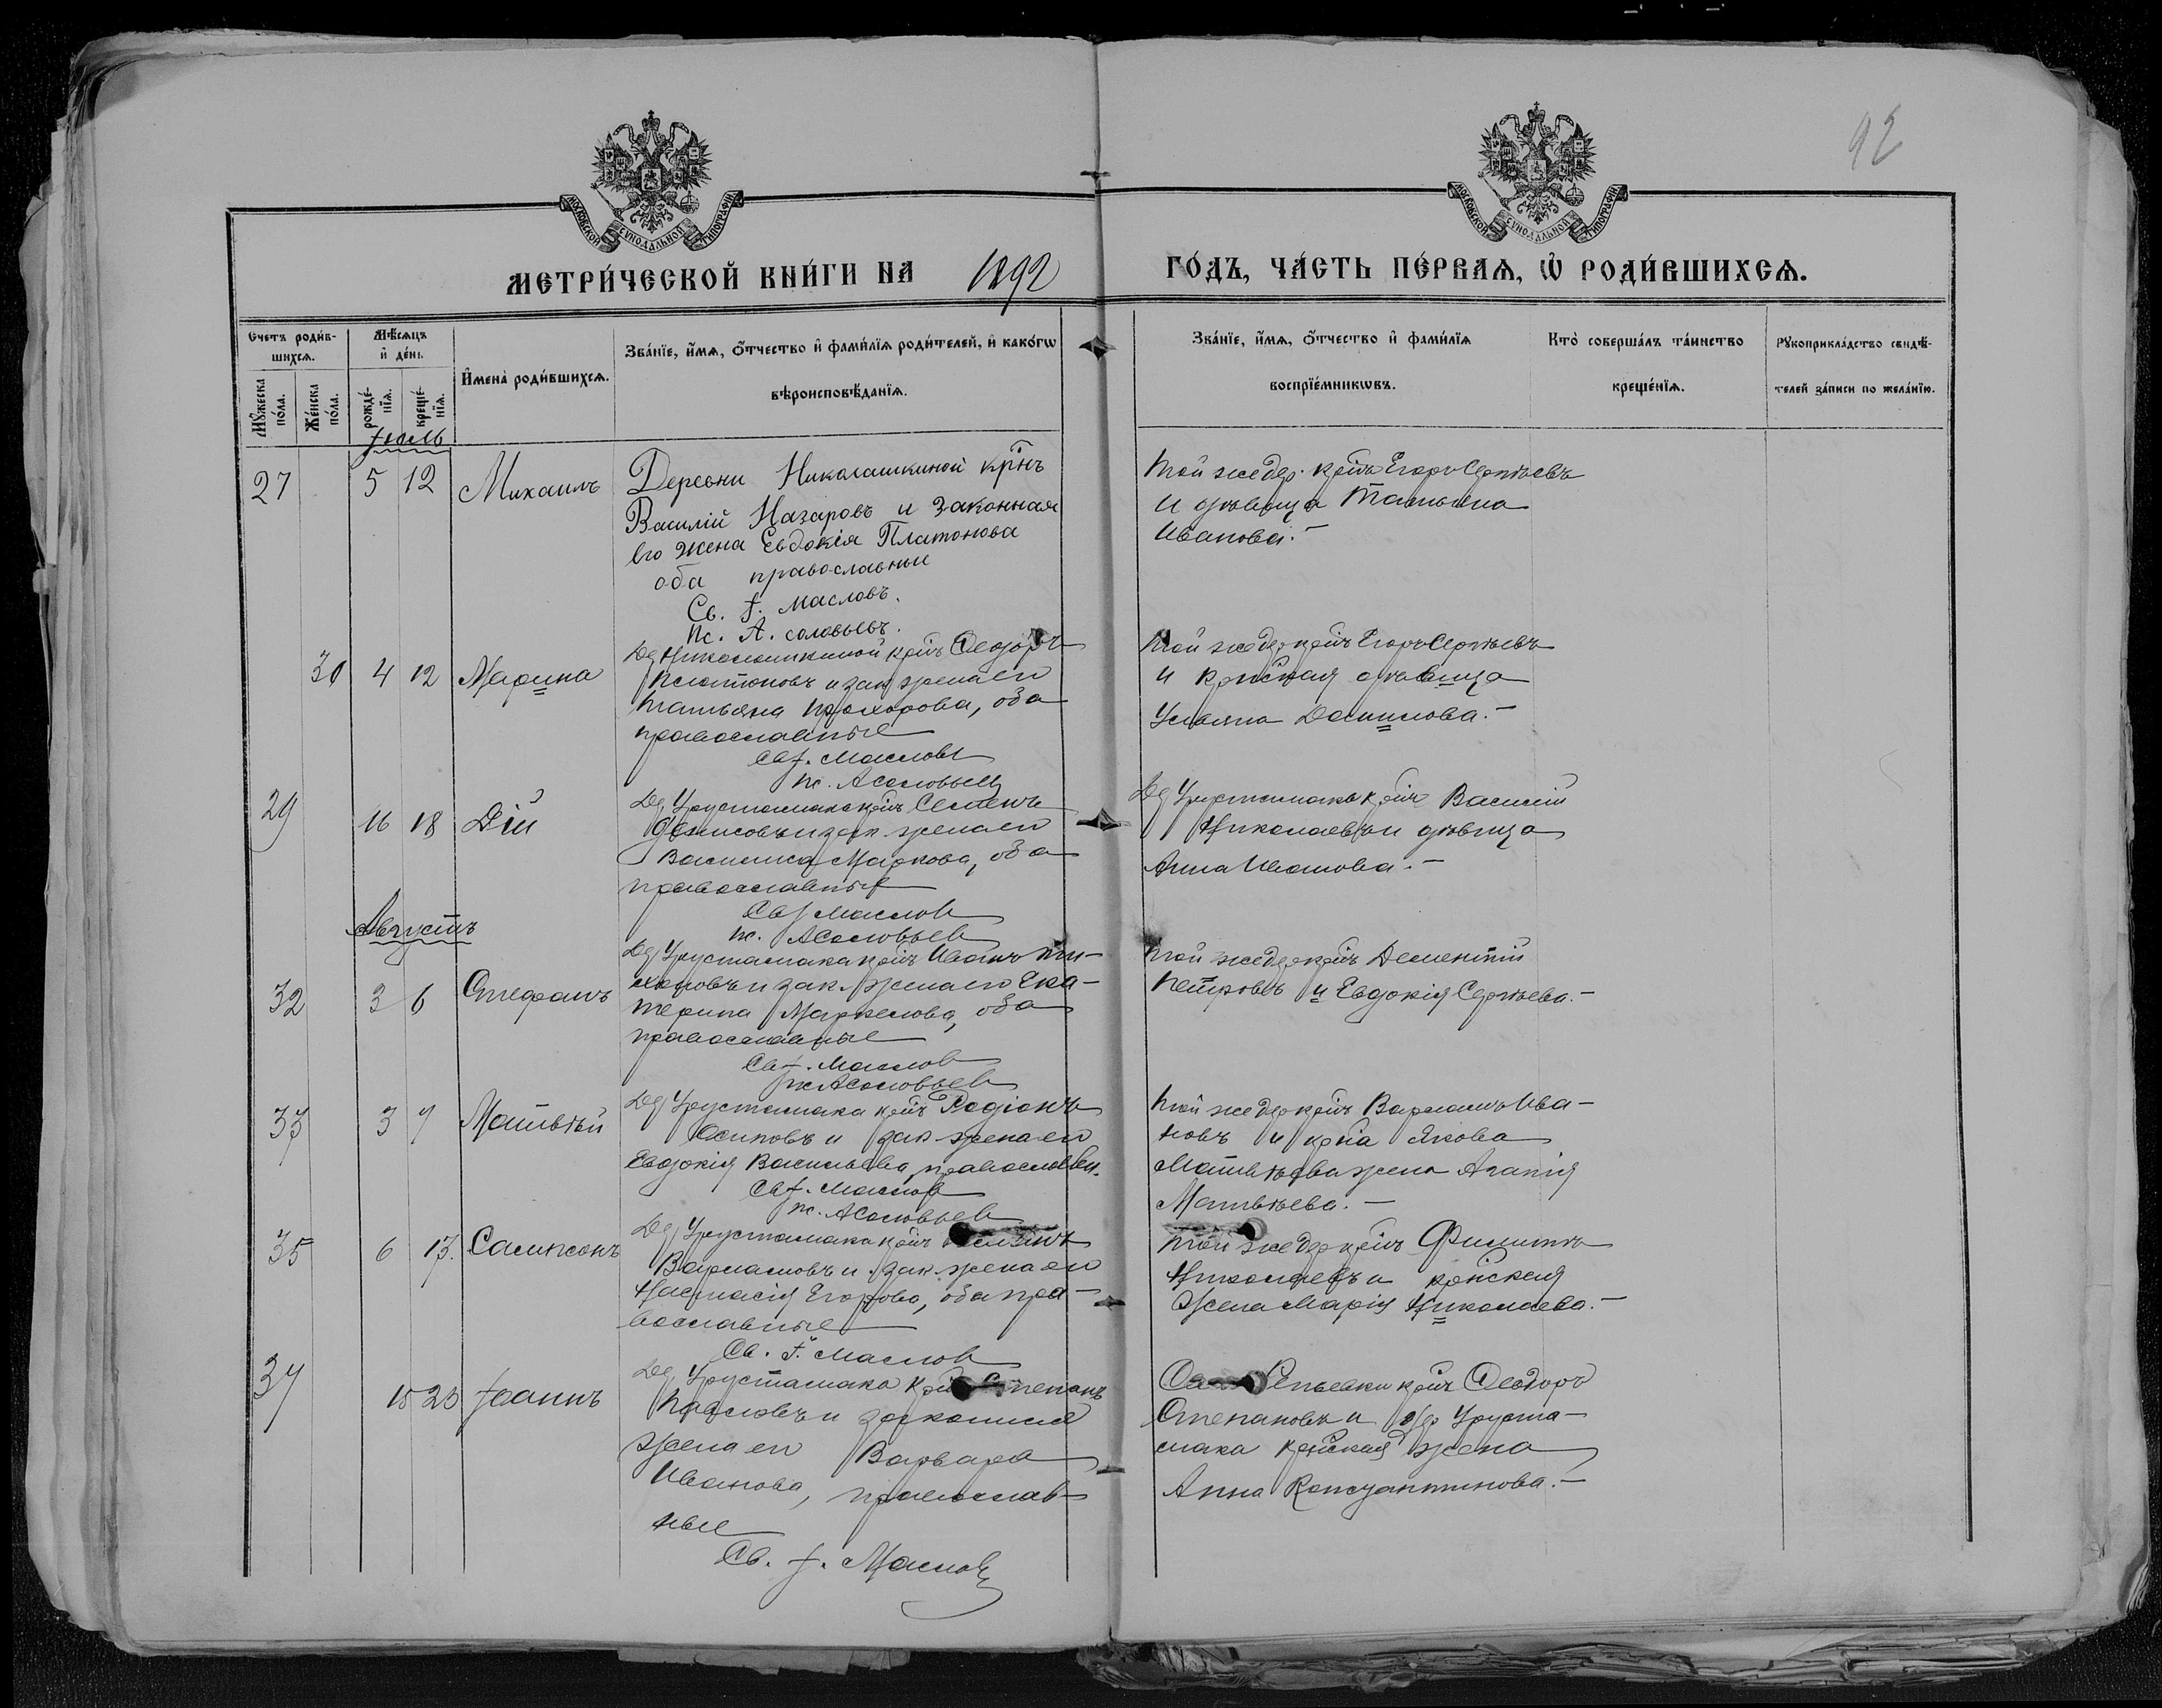 92
МОСКОВСКОЙ СѴНОДАЛЬНОЙ ТИПОГРАФІИ
МОСКОВСКОЙ СѴНОДАЛЬНОЙ ТИПОГРАФІИ
МЕТРИ́ЧЕСКОЙ КНИ́ГИ НА 1892 ГО́ДЪ, ЧА́СТЬ ПЕ́РВАѦ, Ѡ҆ РОДИ́ВШИХСѦ.
Счетъ роди́в-
шихсѧ.
Мꙋ́жеска по́ла.
Же́нска по́ла.
Мѣ́сѧцъ
и҆ де́нь.
рожде́-
нїѧ.
креще́-
нїѧ.
И҆мена̀ роди́вшихсѧ.
Зва́нїе, и҆́мѧ, ѻ҆́тчество и҆ фами́лїѧ роди́телей, и҆ како́гѡ
вѣроисповѣ́данїѧ.
Зва́нїе, и҆́мѧ, ѻ҆́тчество и҆ фами́лїѧ
воспрїе́мникѡвъ.
Кто̀ соверша́лъ та́инство
креще́нїѧ.
Рꙋкоприкла́дство свидѣ́-
телей за́писи по жела́нїю.
Іюль
27 5 12 Михаилъ
Деревни Николашкиной крнъ
Василій Назаровъ и законная
его жена Евдокія Платонова
оба православные
Св. І. Масловъ.
Пс. А. Соловьевъ.
Той же дер. крнъ Егоръ Сергѣевъ
и дѣвица Татьяна
Иванова.—
30 4 12 Марина
Де Николашкиной крнъ Ѳеодоръ
Платоновъ и зак жена его
Татьяна Прохорова, оба
православные
Св І. Масловъ
Пс. А Соловьевъ
Той же дер крнъ Егоръ Сергѣевъ
и крнская дѣвица
Ульяна Данилова.—
29 16 18 Дій
Де Урустамака крнъ Семенъ
Денисовъ и зак. жена его
Василиса Маркова, оба
православные
Св І Маслов
пс. А Соловьев
Де Урустамака крнъ Василій
Николаевъ и дѣвица
Анна Иванова.—
Августъ
32 3 6 Стефанъ
Де Урустамака крнъ Иванъ Ти-
хоновъ и зак. жена его Ека-
терина Маркелова, оба
православные
Св І. Маслов
пс А Соловьев
Той же дер крнъ Дементій
Петровъ и Евдокія Сергѣева.—
33 3 7 Матвѣй
Де Урустамака крнъ Родіонъ
Осиповъ и зак жена его
Евдокія Васильева, православн.
Св І. Маслов
пс. А Соловьев
Той же дер крнъ Варламъ Ива-
новъ и крна Якова
Матвѣева жена Агапія
Матвѣева.—
35 6 13. Сампсонъ
Де Урустамака крнъ
Варламовъ и зак жена его
Настасія Егорова, оба пра-
вославные
Св. І. Маслов
Той же дер крнъ Филиппъ
Николаевъ и крнская
жена Марія Николаева.—
37 15 23 Іоаннъ
Де Урустамака крнъ Степанъ
Павловъ и законная
жена его Варвара
Иванова, православ-
ные
Св. І. Маслов
Репьевки крнъ Ѳеодоръ
Степановъ и дер Уруста-
мака крнская жена
Анна Константинова.—